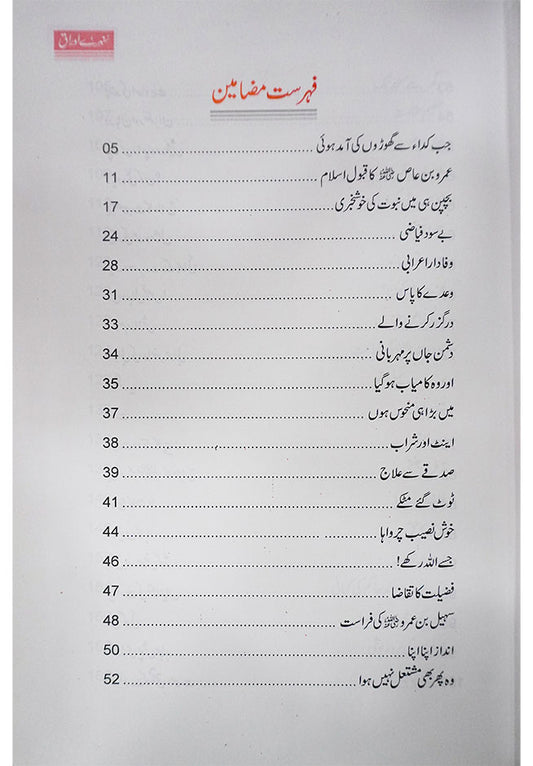 سنہرے اوراق
فہرست مضامین
جب کداء سے گھوڑوں کی آمد ہوئی 05
عمرو بن عاص رضی اللہ عنہ کا قبول اسلام 11
بچپن ہی میں نبوت کی خوشخبری 17
بے سود فیاضی 24
وفادار اعرابی 28
وعدے کا پاس 31
درگزر کرنے والے 33
دشمن جاں پر مہربانی 34
اور وہ کامیاب ہو گیا 35
میں بڑا ہی منحوس ہوں 37
اینٹ اور شراب 38
صدقے سے علاج 39
ٹوٹ گئے مٹکے 41
خوش نصیب چرواہا 44
جسے اللہ رکھے! 46
فضیلت کا تقاضا 47
سہیل بن عمرو رضی اللہ عنہ کی فراست 48
انداز اپنا اپنا 50
وہ پھر بھی مشتعل نہیں ہوا 52